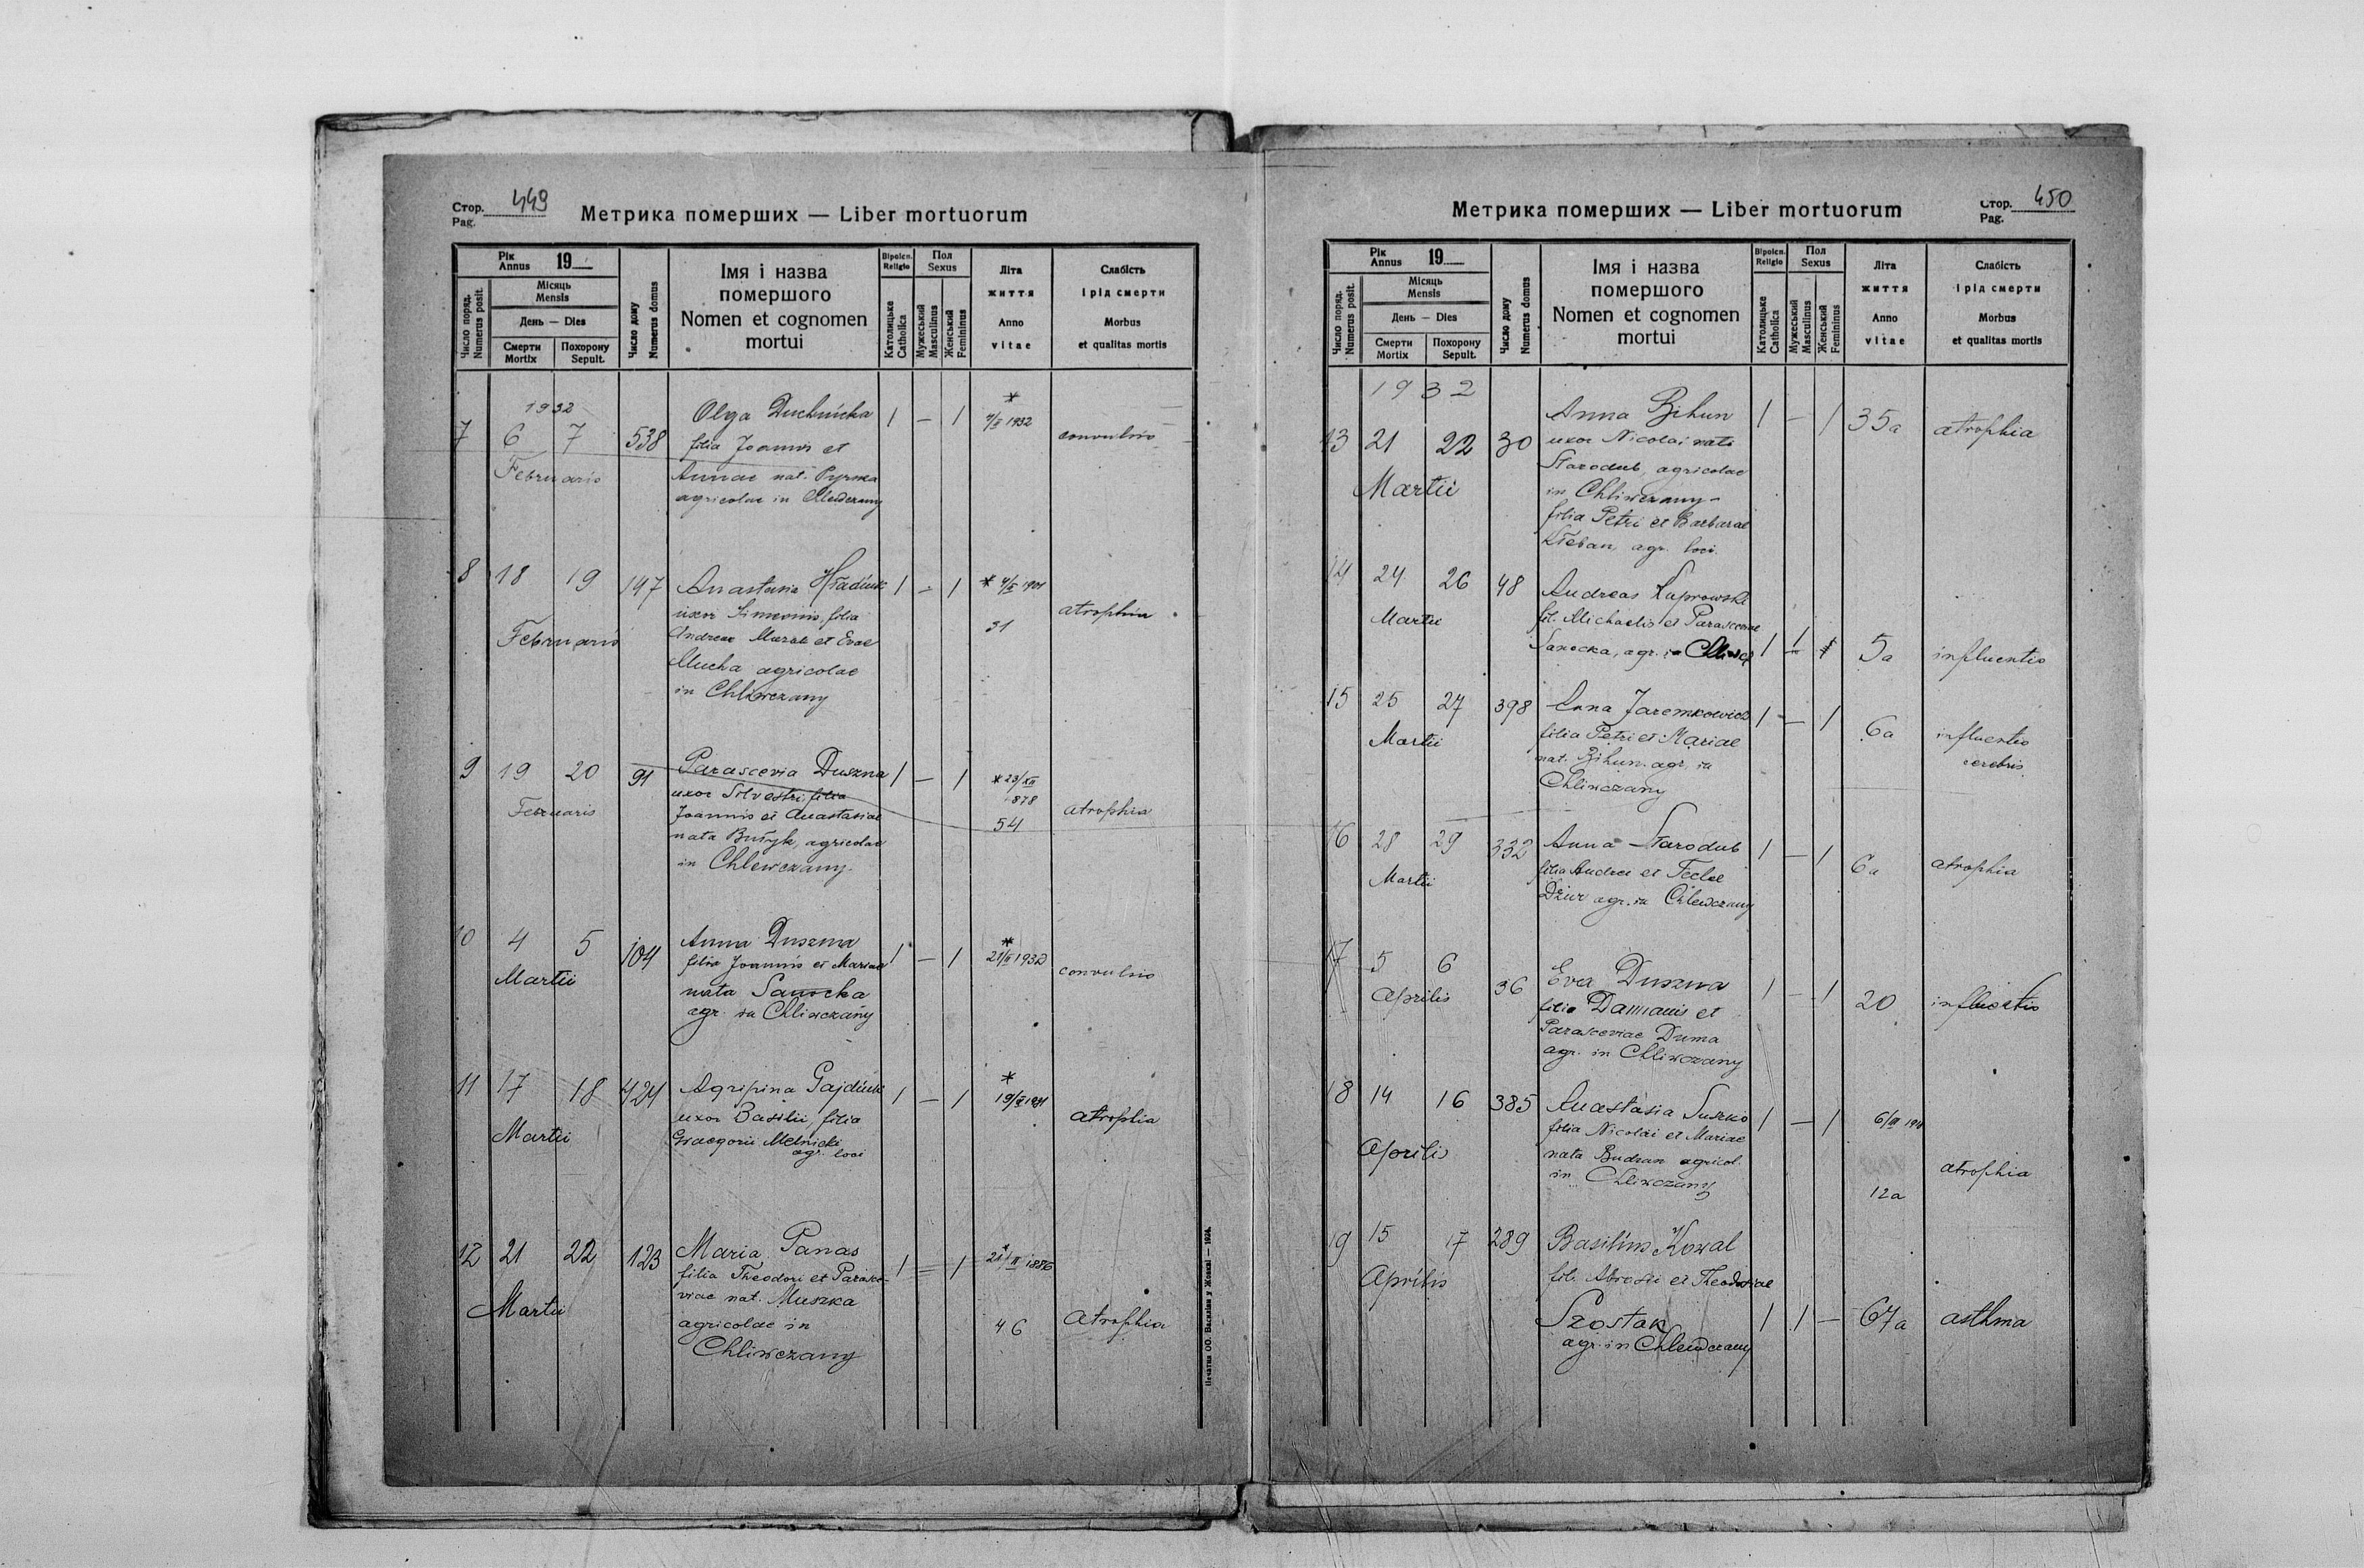 Стор. 449
Pag.
Метрика померших — Liber mortuorum
Рік Annus 19
Місяць Mensis
День — Dies
Смерти Mortix
Похорону Sepult.
Число поряд. Numerus posit.
Число дому Numerus domus
Імя і назва
помершого
Nomen et cognomen
mortui
Віроісп. Religio
Католицьке Catholica
Пол Sexus
Мужеський Masculinus
Женський Femininus
Літа
життя
Anno
vitae
Слабість
і рід смерти
Morbus
et qualitas mortis
1932
7 6 7 538 Olga 1 — 1 * 4/II 1932 convulsio
Februaris
filia Joannis et
Annae nat. Pyrska
agricolae in Chlewczany
8 18 19 147 Anastasia Hładiuk 1 — 1 * 4/II 1901
Februaris
uxor Simeonis, filia 31 atrophia
Andreae Murak et Evae
Mucha agricolae
in Chliwczany
9 19 20 91 Parascevia Duszna 1 — 1 * 23/XII 1878
Februaris
uxor Silvestri filia
Joannis et Anastasiae 54 atrophia
nata Buńyk, agricolae
in Chlewczany.
10 4 5 104 Anna Duszna 1 — 1 * 21/II 1932 convulsio
Martii
filia Joannis et Mariae
nata Sanocka
agr. in Chliwczany
11 17 18 424 Agripina Gajdiuk 1 — 1 * atrophia
Martii
uxor Basilii, filia
Graegorii Melnicki
agr. loci
12 21 22 123 Maria Panas 1 = 1 21/II 1886
Martii
filia Theodori et Parasce-
viae nat. Muszka
agricolae in 46 atrophia
Chliwczany
Печатня ОО. Василіян у Жовкві — 1924.
Стор. 450
Pag.
Метрика померших — Liber mortuorum
Рік Annus 19
Місяць Mensis
День — Dies
Смерти Mortix
Похорону Sepult.
Число поряд. Numerus posit.
Число дому Numerus domus
Імя і назва
помершого
Nomen et cognomen
mortui
Віроісп. Religio
Католицьке Catholica
Пол Sexus
Мужеський Masculinus
Женський Femininus
Літа
життя
Anno
vitae
Слабість
і рід смерти
Morbus
et qualitas mortis
1932
13 21 22 30 Anna Bihun 1 — 1 35a atrophia
Martii
uxor Nicolai nata
Starodub, agricolae
in Chliwczany —
filia Petri et Barbarae
agr. loci.
14 24 26 48 Andreas Kuprowski
Martii
fil. Michaelis et Parasceviae
Sanocka, agr. in Chliwcz 1 1 5a influentio
15 25 27 398 Anna Jaremkowicz 1 — 1 6a influentio
Martii
filia Petri et Mariae cerebris
nat. Bihun agr. in
Chliwczany
16 28 29 332 Anna Starodub 1 — 1 6a atrophia
Martii
filia Andreae et Teclae
Dziur agr. in Chlewczany
17 5 6 36 Eva Duszna 1 — 1 20 influentio
Aprilis
filia Damianis et
Parasceviae Duma
agr. in Chliwczany
18 14 16 385 Anastasia Suszko 1 — 1 6/III
Aprilis
filia Nicolai et Mariae
nata Budzan agricol. atrophia
in Chliwczany 12a
19 15 17 289 Basilius Kowal
Aprilis
fil. et Theodosiae
Szostak 1 1 — 67a asthma
agr. in Chlewczany